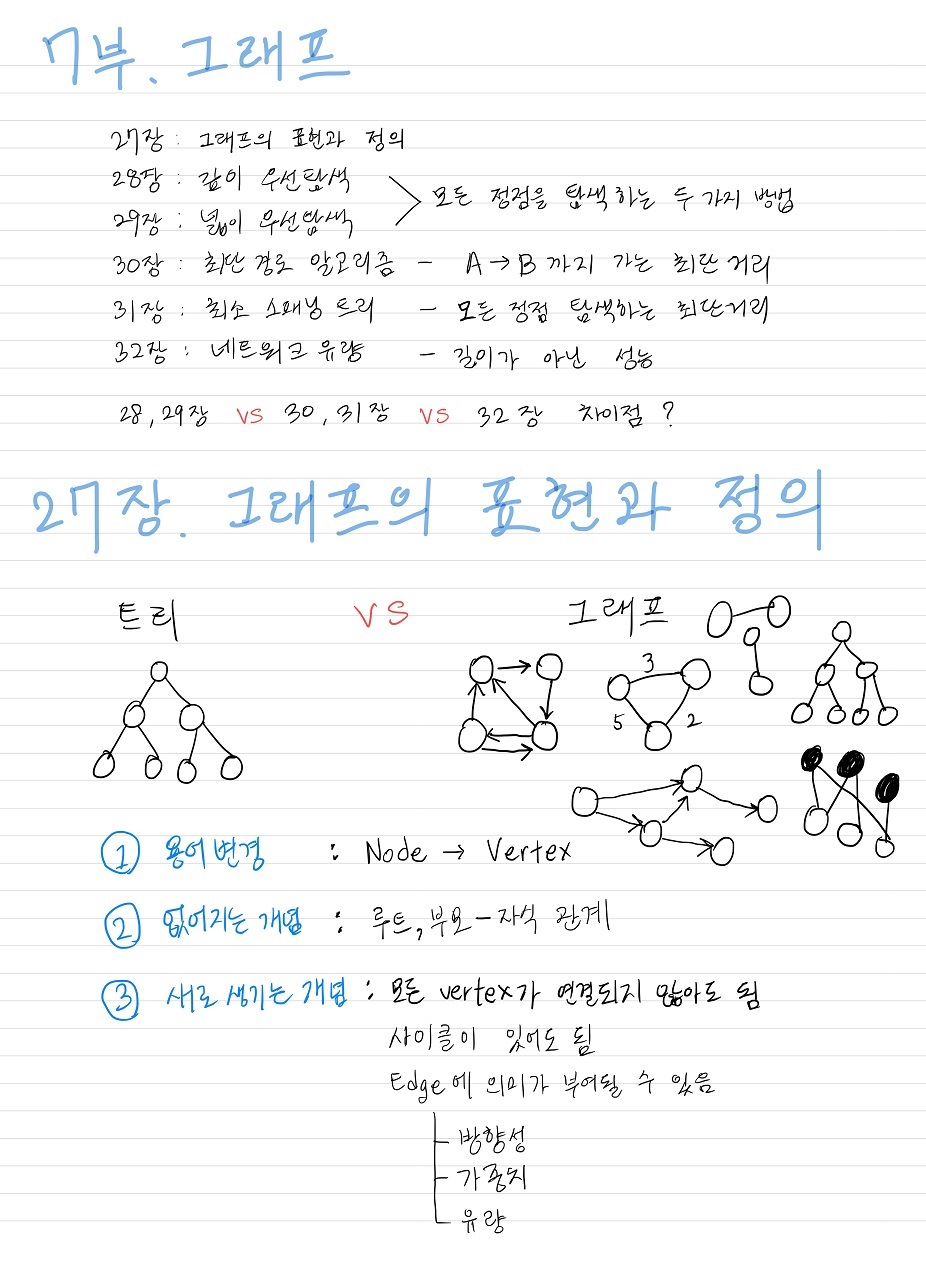 7부. 그래프
27장 : 그래프의 표현과 정의
28장 : 깊이 우선탐색
모든 정점을 탐색하는 두 가지 방법
29장 : 넓이 우선탐색
30장 : 최단 경로 알고리즘 - A → B 까지 가는 최단 거리
31장 : 최소 스패닝 트리 - 모든 정점 탐색하는 최단거리
32장 : 네트워크 유량 - 길이가 아닌 성능
28, 29장 VS 30, 31장 VS 32장 차이점 ?
27장. 그래프의 표현과 정의
트리 VS 그래프
3
5 2
① 용어 변경 : Node → Vertex
② 없어지는 개념 : 루트, 부모-자식 관계
③ 새로 생기는 개념 : 모든 vertex가 연결되지 않아도 됨
사이클이 있어도 됨
Edge에 의미가 부여될 수 있음
방향성
가중치
유량